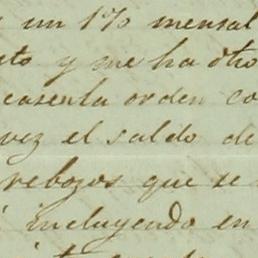 un 1% mensal
y me ha dho
orden co
vez el saldo de
rebozos que se
incluyendo en